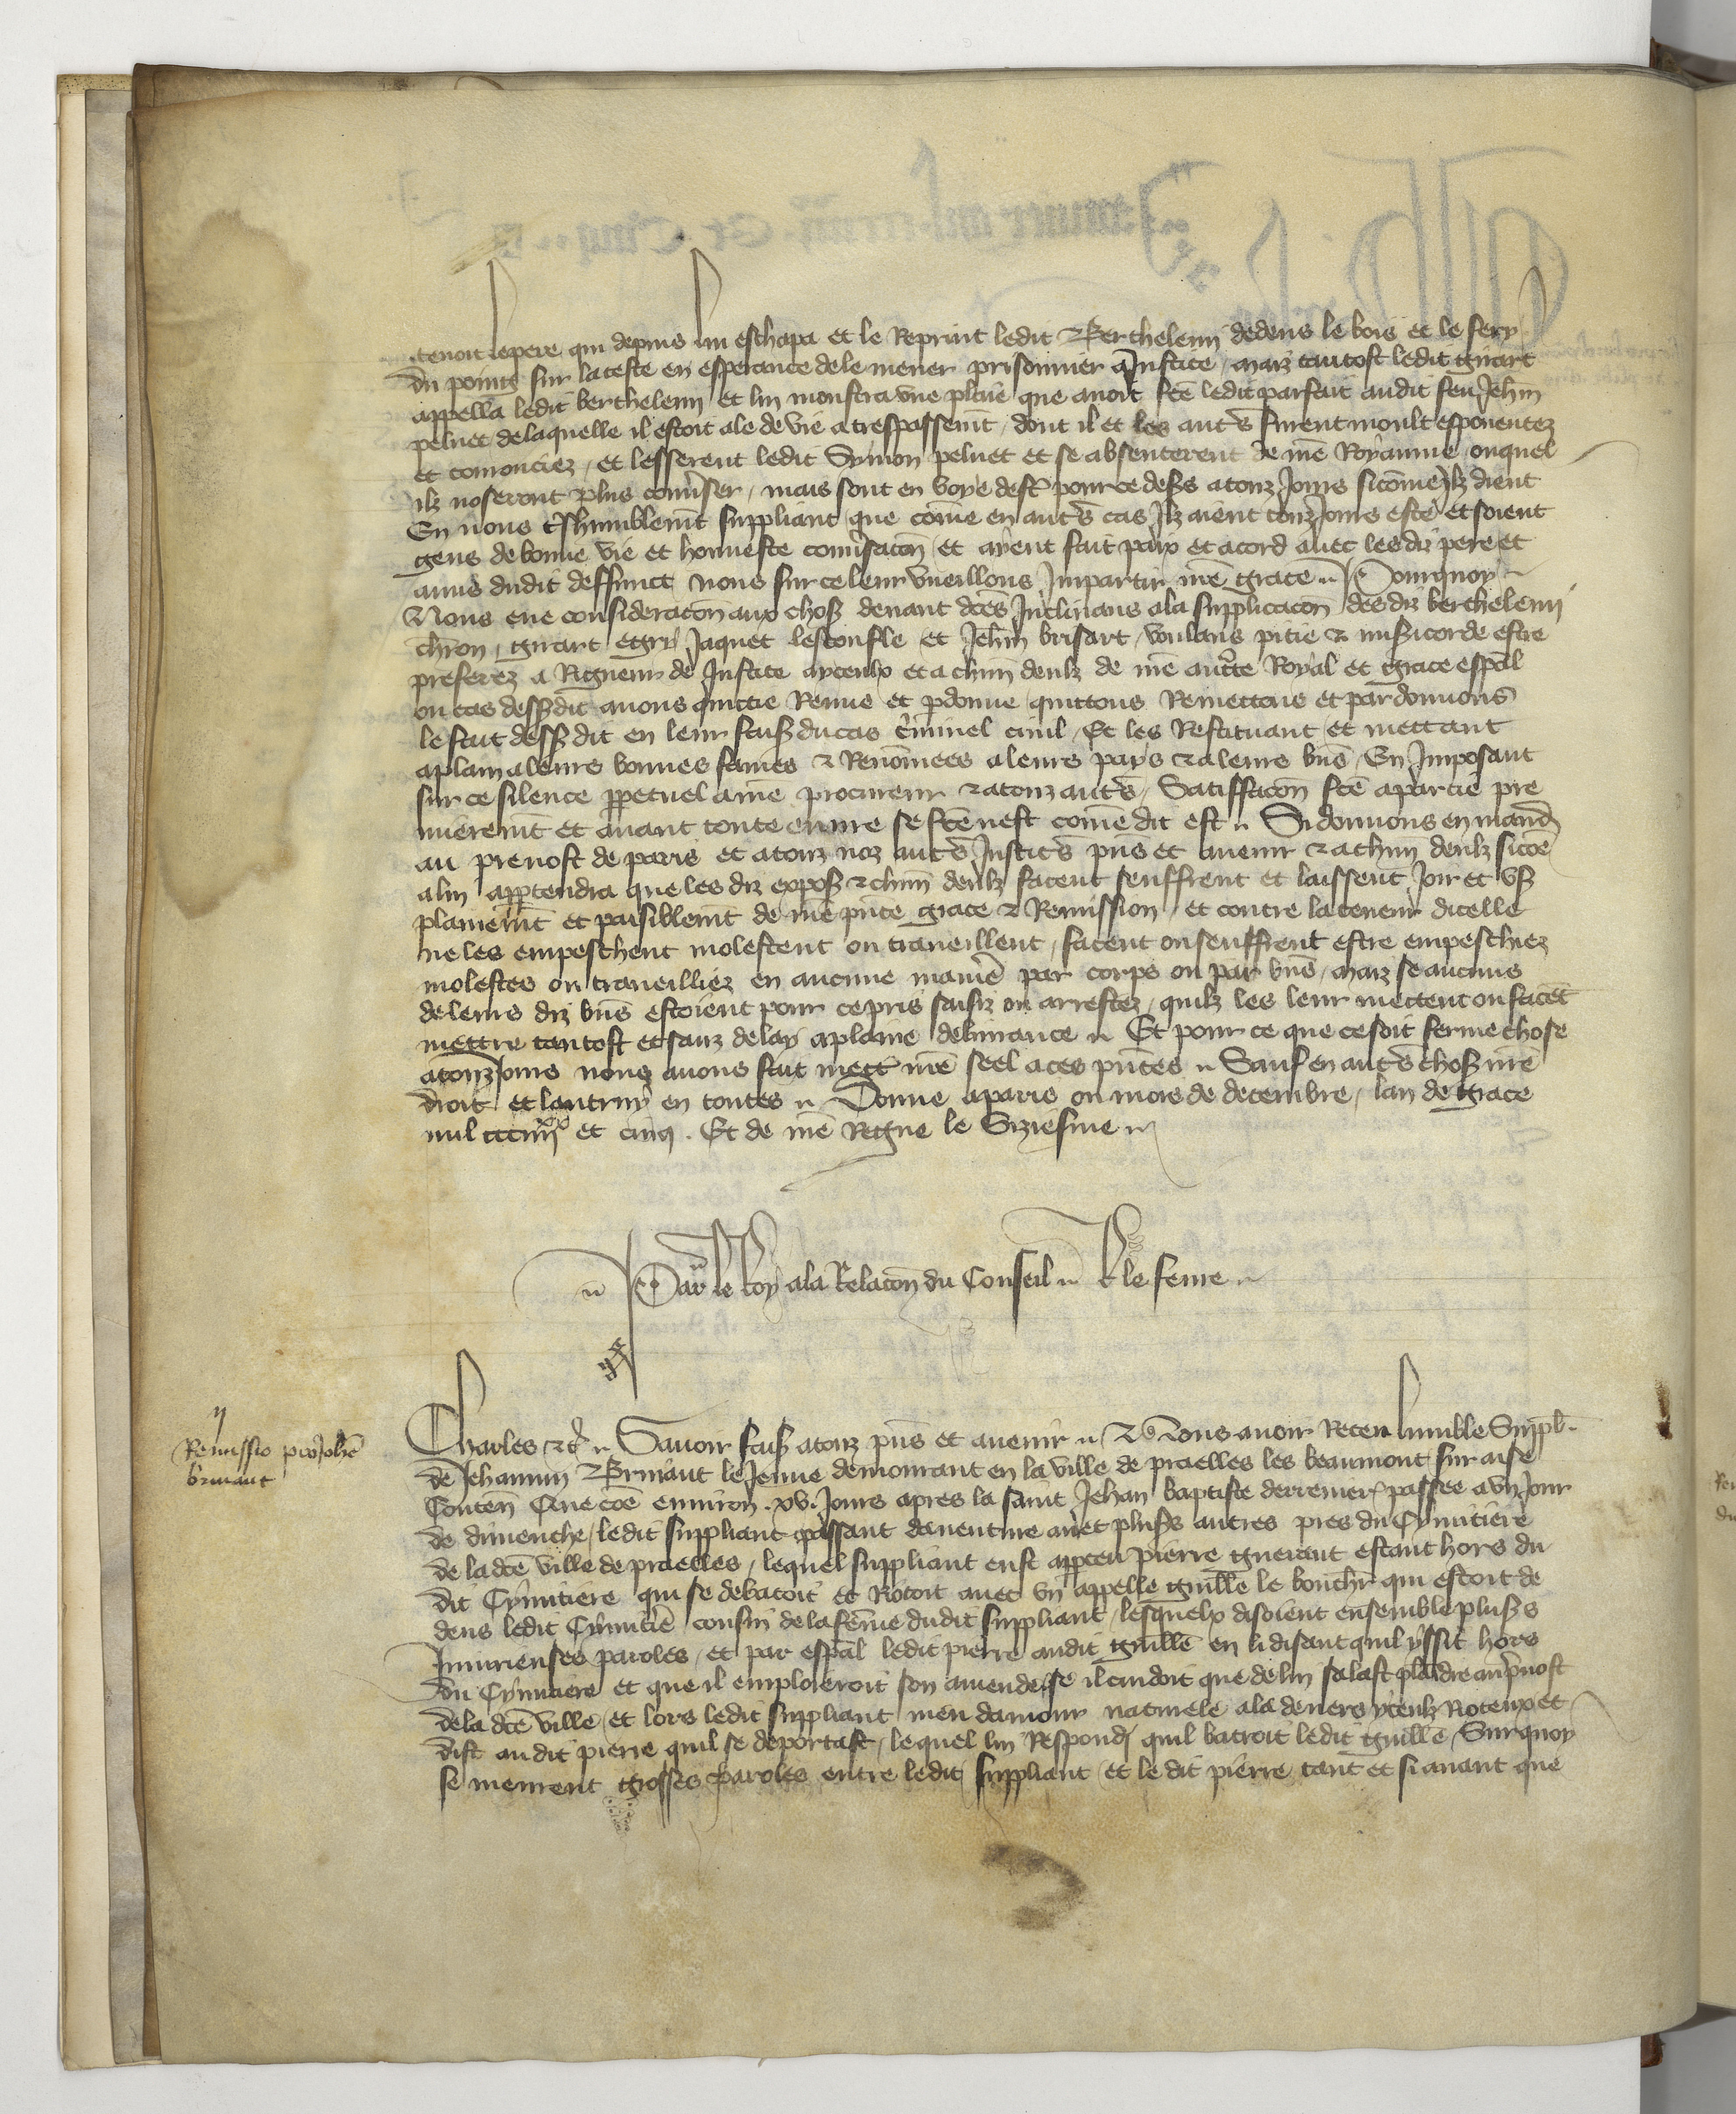 tenoit lepere qui depuis lui eschapa et le Reprint ledit Berthelemi dedens le bois et le fery
du poing sur lateste en esperance dele mener prisonnier a Justice, maiz tantost ledit girart
appella ledit berthelemi et lui monstra une plaie que avoit fcē ledit parfait audit feu Jehn
peluet delaquelle il estoit ale de vie a trespassemt, dont il et les autrs furent moult espouentez
et couroucez, et lesserent ledit Symon peluet et se absenterent de nrē Royaume, ouquel
ilz noseront plus convser, mais sont en voye destre pour ce desers a touz Jours sicōme ilz dient
En nous trshumblemt suppliant que cōme en autrs cas Ilz aient touz Jours este et soient
gens de bonne vie et honneste convsacōn et ayent fait paix et acord avec les diz pere et
amis dudit deffunct nous sur ce leur vueillons Impartir nrē grace Pourquoy
Nous eue consideracōn aux choses devant dcēs Inclinans ala supplicacōn des diz berthelemi
chron, girart egry Jaquet lescoufle et Jehn brisart, voulans pitie & misicorde estre
preferez a Rigueur de Justice ayceulx et a chūn deulz de nrē auctte Royal et grace espāl
ou cas dessusdit avons quictie Remis et pdonne quittons Remettons et pardonnons
le fait dessus dit en leur faiss ducas criminel civil, Et les Restituant et mettant
aplain aleurs bonnes fames & Renōmees aleurs pays & aleurs bns, En Imposant
sur ce silence ppetuel a nrē procureur & atouz autrs, Satisfacōn fcē a partie pre
mieremt et avant toute euvre se fcē nest cōme dit est Si donnons en mand
au prevost de paris et a touz noz autrs Justicrs pns et avenir & a chūn deulz sicōe
a lui apptendra que les diz exposs & chūn deulz facent seuffrent et laissent Joir et us
plainemt et paisiblemt de nrē pnte grace & Remission, et contre la teneur dicelle
ne les empeschent molestent ou traveillent, facent ou seuffrent estre empeschiez
molestes ou traveilliez en aucune manie par corps ou par bns, maiz se aucuns
de leurs diz bns estoient pour ce pris saisiz ou arrestez, quilz les leur mettent ou facēt
mettre tantost et sanz delay aplaine delivrance Et pour ce que ce soit ferme chose
atouz Jours nous avons fait mettre nrē seel a ces pntes Sauf en autrs choss nrē
droit et lautruy en toutes Donne a paris ou mois de decembre, lan de grace
mil ccciiij xx et cinq. Et de nrē Regne le Siziesme
Par le Roy ala Relacōn du Conseil le feure
Remissio pro Johē
brinaut
Charles &c Savoir faiss atouz pns et avenir Nous avoir Receu humble Supplic
de Jehannin Brinaut le Jeune demourant en la ville de praelles les beaumont sur aise
Contenant Que cōe environ .xv. Jours apres la saint Jehan baptiste derreniere passee a un Jour
de dimenche, ledit suppliant passant davent­ure avec pluss autres pres du Cymitiere
de la dcē ville de praelles, lequel suppliant eust appceu pierre guerant estant hors du
dit Cymitiere qui se debatoit et Riotoit avec un appelle guillē le bouchr qui estoit de
dens ledit Cymitiē cousin de la fēme dudit suppliant, lesquelx disoient ensemble pluss
Injurieuses paroles, et par espāl ledit pierre audit guillē en li disant quil yssit hors
du Cymitiere et que il emploieroit son amende, se il cuidoit que de lui salast plaidre au pvost
de la dcē ville, et lors ledit suppliant meu damour naturele ala devers yceulz Rioteux et
dist audit pierre quil se deportast, lequel lui Respondi quil batroit ledit guillē, Surquoy
se meurent grosses paroles entre ledit suppliant et le dit pierre tant et si avant que